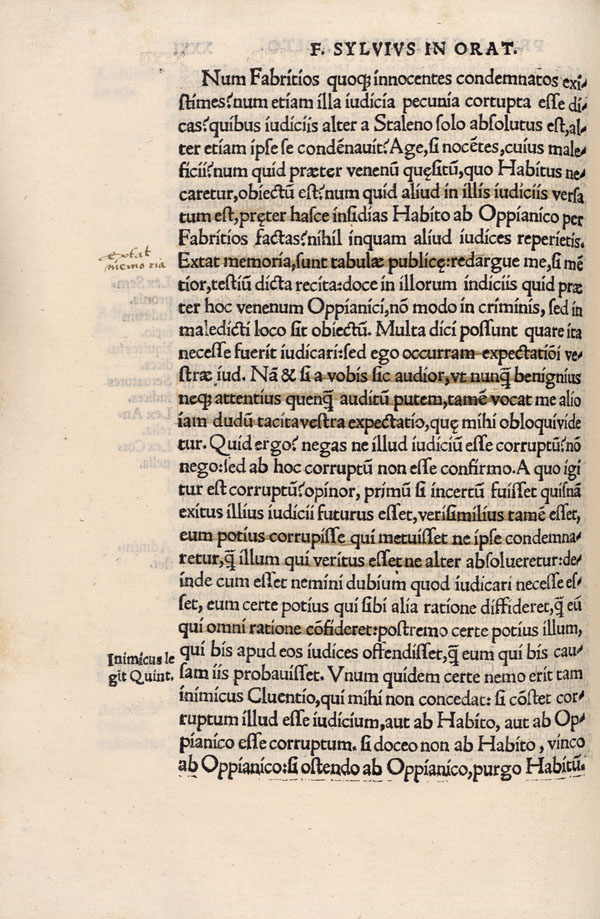 F. SYLVIVS IN ORAT.
Num Fabritios quoqꝫ innocentes condemnatos exi-
stimes? num etiam illa iudicia pecunia corrupta esse di-
cas? quibus iudiciis alter a Staleno solo absolutus est, al-
ter etiam ipse se condēnauit? Age, si nocētes, cuius male-
ficii? num quid præter venenū quęsitū, quo Habitus ne-
caretur, obiectū est? num quid aliud in illis iudiciis versa
tum est, pręter hasce insidias Habito ab Oppianico per
Fabritios factas? nihil inquam aliud iudices reperietis.
extat
memoria
Extat memoria, sunt tabulæ publicę: redargue me, si mē
tior, testiū dicta recita: doce in illorum indiciis quid præ
ter hoc venenum Oppianici, nō modo in criminis, sed in
maledicti loco sit obiectū. Multa dici possunt quare ita
necesse fuerit iudicari: sed ego occurram expectatiōi ve-
stræ iud. Nā & si a vobis sic audior, vt nunq̄ benignius
neqꝫ attentius quenq̄ auditū putem, tamē vocat me alio
iam dudū tacita vestra expectatio, quę mihi obloqui vide
tur. Quid ergo? negas ne illud iudiciū esse corruptū? nō
nego: sed ab hoc corruptū non esse confirmo. A quo igi
tur est corruptū? opinor, primū si incertū fuisset quisnā
exitus illius iudicii futurus esset, verisimilius tamē esset,
eum potius corrupisse qui metuisset ne ipse condemna-
retur, q̄ illum qui veritus esset ne alter absolueretur: de-
inde cum esset nemini dubium quod iudicari necesse es-
set, eum certe potius qui sibi alia ratione diffideret, q̄ eū
qui omni ratione cōfideret: postremo certe potius illum,
Inimicus le
git Quint.
qui bis apud eos iudices offendisset, q̄ eum qui bis cau-
sam iis probauisset. Vnum quidem certe nemo erit tam
inimicus Cluentio, qui mihi non concedat: si cōstet cor-
ruptum illud esse iudicium, aut ab Habito, aut ab Op-
pianico esse corruptum. si doceo non ab Habito, vinco
ab Oppianico: si ostendo ab Oppianico, purgo Habitū.